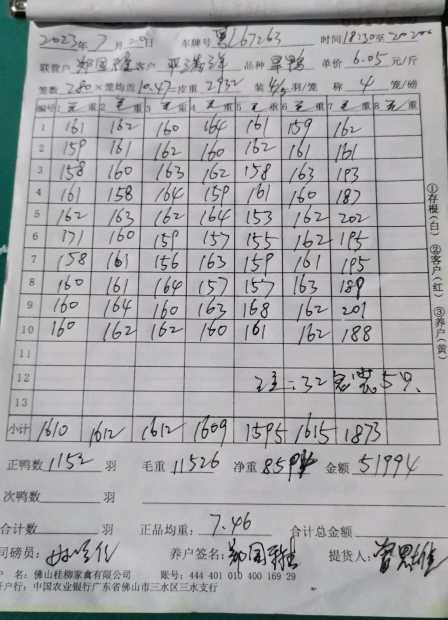 2023年7月29日 车牌号 黑L67263 时间18:30至20206
联营户 客户 品种 单价 6.05 元/斤
笼数 280 ×笼均重 10.47 =皮重 2932 装4/5羽/笼 称 4 笼/磅
编号 1 毛重 2 毛重 3 毛重 4 毛重 5 毛重 6 毛重 7 毛重 8 毛重
1 161 162 160 164 161 159 162
2 159 161 162 160 162 161 161
3 158 160 163 162 158 163 193
4 161 158 164 159 161 160 187
5 162 163 162 164 153 162 202
6 171 160 159 157 155 162 195
7 158 161 156 163 159 161 195
8 160 161 164 157 157 163 189
9 160 164 160 163 168 162 201
10 160 162 162 160 161 162 188
11
12 注:32笼装5只
13
小计 1610 1612 1612 1609 1595 1615 1873
正鸭数 1152 羽 毛重 11526 净重 8594 金额 51994
次鸭数 羽
合计数 羽 正品均重: 7.46 合计总金额
司磅员: 养户签名: 提货人:
户 名: 佛山桂柳家禽有限公司 账号: 444 401 010 400 169 29
开户行: 中国农业银行广东省佛山市三水区三水支行
①存根(白) ②客户(红) ③养户(黄)